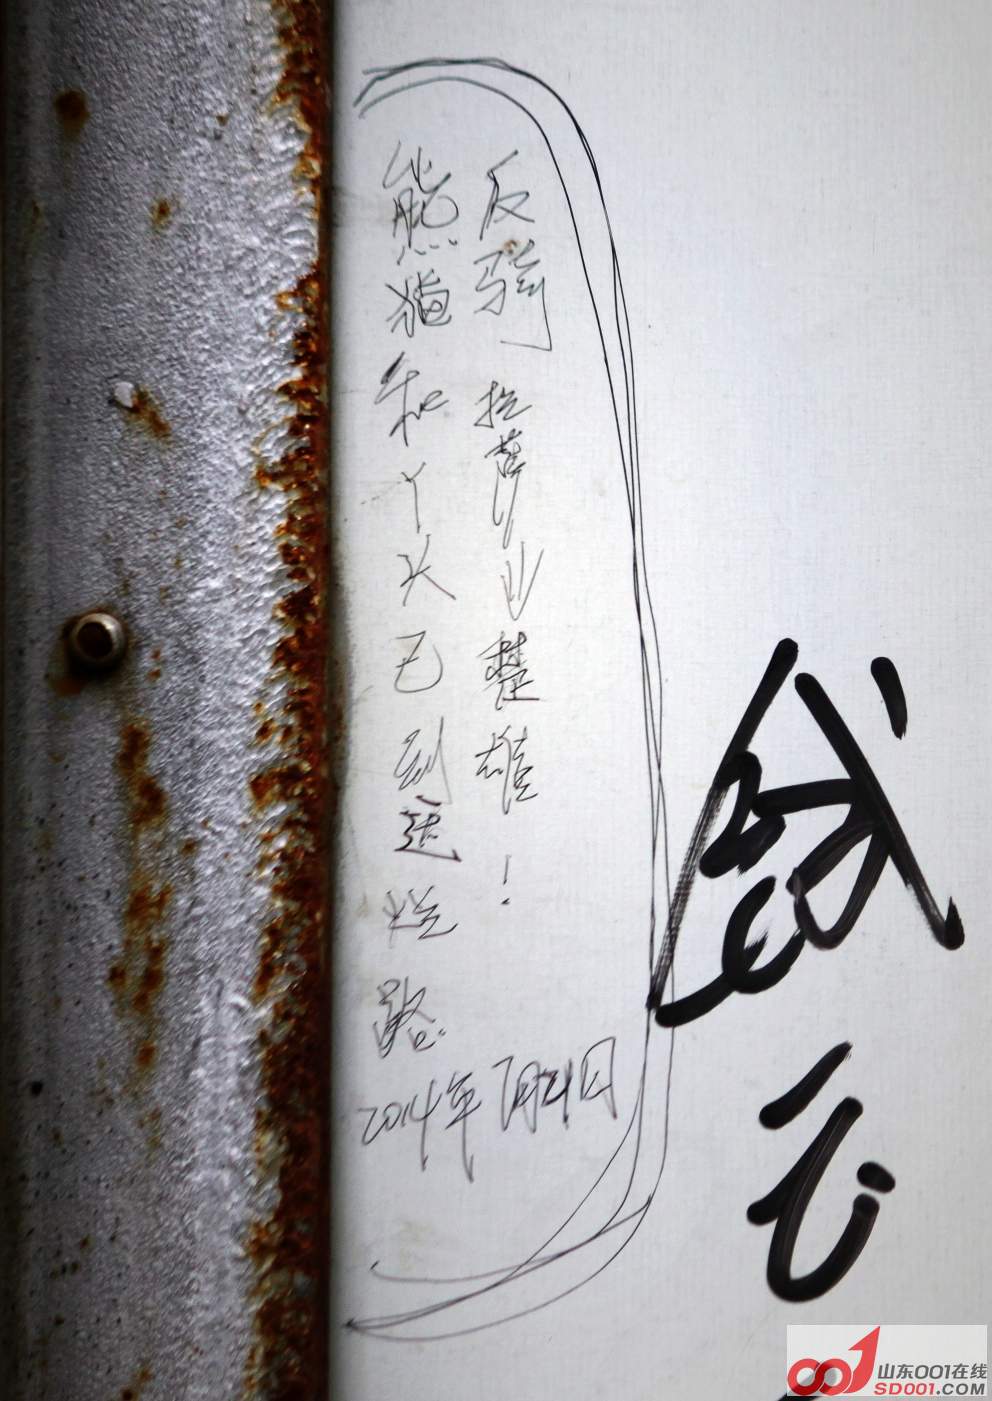 反骑 拉萨↓楚雄!
熊猫和丫头已到这烂路
2014年7月21日
山东001在线
SD001.COM